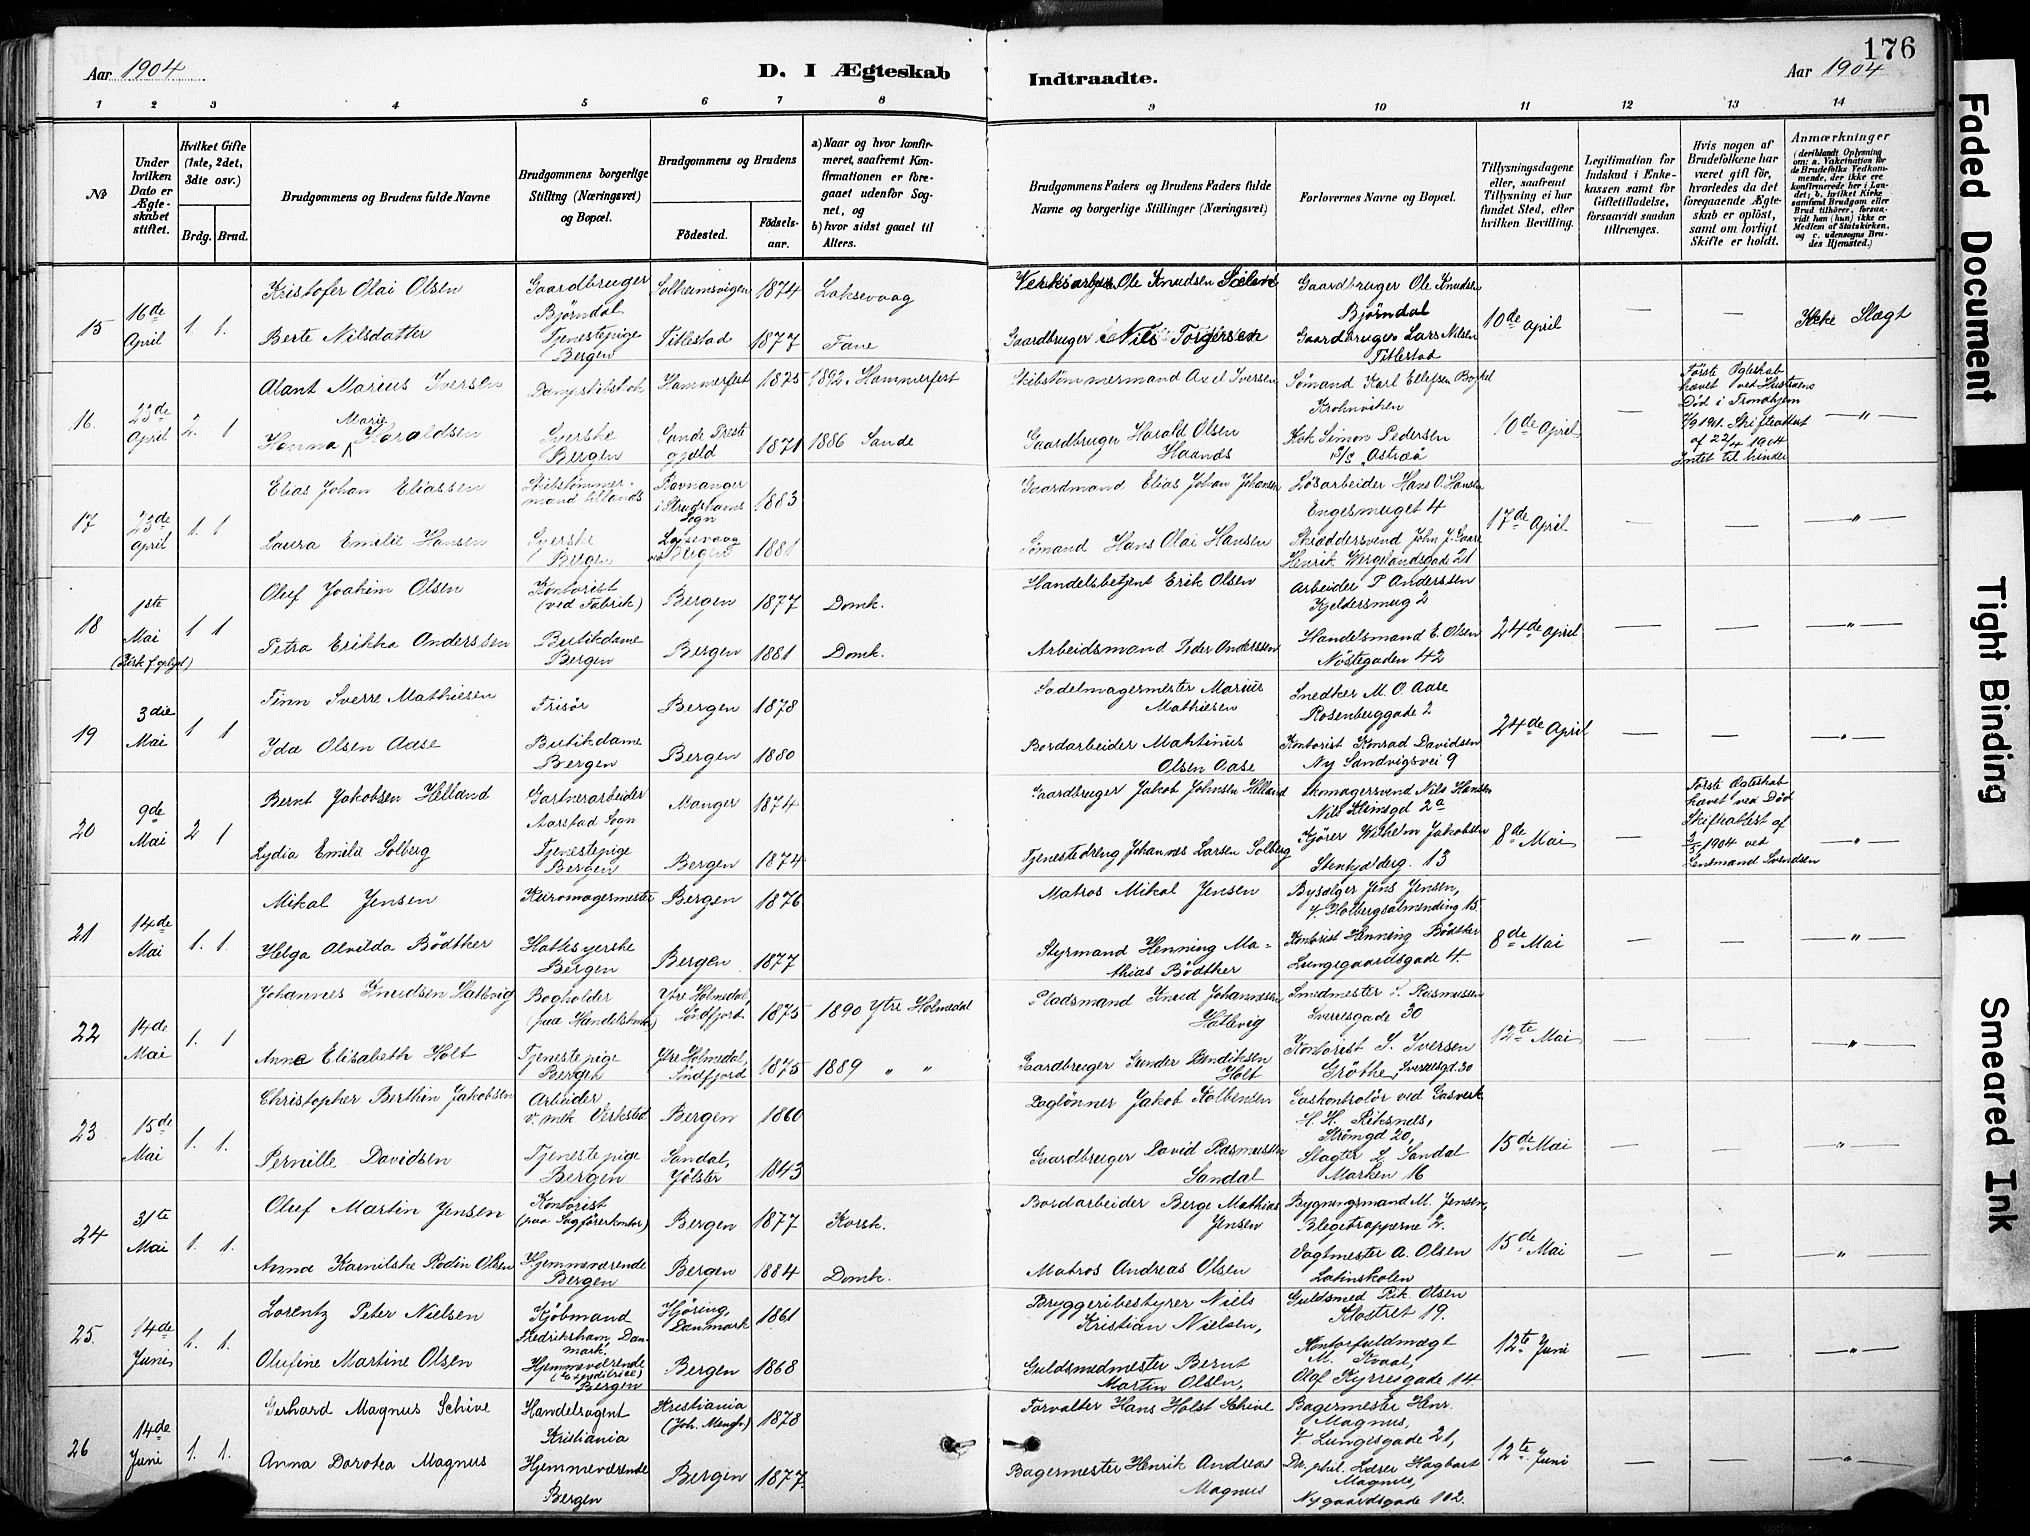 Aar 1904
D. I Ægteskab
Indtraadte.
Aar 1904
176
1 2 3 4 5 6 7 8 9 10 11 12 13 14
No
Under hvilken Dato er Ægteskabet stiftet.
Hvilket Gifte (1ste, 2det, 3die osv.)
Brdg. Brud.
Brudgommens og Brudens fulde Navne
Brudgommens borgerlige Stilling (Næringsvei) og Bopæl.
Brudgommens og Brudens
Födested.
Födselsaar.
a) Naar og hvor konfirmeret, saafremt Konfirmationen er foregaaet udenfor Sognet, og
b) hvor sidst gaaet til Alters.
Brudgommens Faders og Brudens Faders fulde Navne og borgerlige Stillinger (Næringsvei)
Forlovernes Navne og Bopæl.
Tillysningsdagene eller, saafremt Tillysning ei har fundet Sted, efter hvilken Bevilling.
Legitimation for Indskud i Enkekassen samt for Giftetilladelse, forsaavidt saadan tiltrænges.
Hvis nogen af Brudefolkene har været gift för, hvorledes da det foregaaende Ægteskab er oplöst, samt om lovligt Skifte er holdt.
Anmærkninger
(deriblandt Oplysning om: a. Vakcination for de Brudefolks Vedkommende, der ikke ere konfirmerede her i Landet; b. hvilket Kirkesamfund Brudgom eller Brud tilhörer, forsaavidt han (hun) ikke er Medlem af Statskirken, og c. udensogns Brudes Hjemsted.)
15 16de April 1. 1.
Kristofer Olai Olsen Gaardbruger Björndal Solheimsvigen 1874 Laksevaag
Ole Knudsen Gaardbruger Ole Knudsen Björndal
Berte Nilsdatter Tjenestepige Bergen Titlestad 1877 Fane
Gaardbruger Nils Torgersen Gaardbruger Lars Nilsen Titlestad
10de April — — Ikke Slægt
16. 23de April 2. 1
Alant Marius Iversen Hammerfest 1875 1892. Hammerfest
Skibstömmermand Axel Iversen Sömand Karl Ellefsen
Krohnviken
Hanna Marie Haraldsen Syerske Bergen Sande Prestegjæld 1871 1886 Sande
Gaardbruger Harald Olsen Haands Kok Simon Pedersen S/S "Astræa"
10de April —
Første Ægteskab hævet ved Hustruens Död i Trondhjem Skifteattest af 22/4 1904 Intet til hinder
— " —
17 23de April 1. 1
Elias Johan Eliassen Skibstömmermand tillands 1883
Gaardmand Elias Johan Johansen Lösarbeider Hans O. Hansen Engesmuget 4
Laura Emilie Hansen Syerske Bergen Laksevaag 1881
Sömand Hans Olai Hansen Skræddersvend John J. Gaare Henrik Wergelandsgade 21
17de April — — — " —
18 1ste Mai 1 1
Oluf Joakim Olsen Kontorist (ved Fabrik) Bergen 1877 Domk.
Handelsbetjent Erik Olsen Arbeider P. Anderssen Kjeldersmug 2
Petra Erikka Anderssen Butikdame Bergen Bergen 1881 Domk.
Arbeidsmand Peder Anderssen Handelsmand E. Olsen Nöstegaden 42
24de April — — — " —
19 3die Mai 1 1
Finn Sverre Mathiesen Frisör Bergen 1878
Sadelmagermester Marius Mathiesen Snedker M. O. Aase Rosenberggade 2
Ida Olsen Aase Butikdame Bergen Bergen 1880
Bordarbeider Martinus Olsen Aase Kontorist Konrad Davidsen Ny Sandvigsvei 9
24de April — — — " —
20 9de Mai 2 1
Bernt Jakobsen Helland Gartnerarbeider Aarstad Sogn Manger 1874
Gaardbruger Jakob Johnsen Helland Skomagersvend Nils Hansen
Lydia Emilie Solberg Tjenestepige Bergen Bergen 1874
Tjenestedreng Johannes Larsen Solberg Kjörer Wilhelm Jakobsen Stenkjelderg. 13
8de Mai —
Förste Ægteskab hævet ved Död Skifteattest af 3/5 1904 ved Lensmand Svendsen
— " —
21 14de Mai 1. 1.
Mikal Jensen Bergen 1876
Matros Mikal Jensen Bysælger Jens Jensen, Holbergsalmending 15.
Helga Alvilda Bödtker Hattesyerske Bergen Bergen 1877
Styrmand Henning Mathias Bödtker Kontorist Henning Bödtker Lungegaardsgade 4.
8de Mai — — — " —
22 14de Mai 1. 1
Johannes Knudsen Hatlevig Bogholder (paa Handelskontor) Ytre Holmedal, Söndfjord 1875 1890 Ytre Holmedal
Pladsmand Knud Johannesen Hatlevig Smedmester S. Rasmussen Sverresgade 30
Anna Elisabeth Holt Tjenestepige Bergen Ytre Holmedal, Söndfjord 1875 1889 " "
Gaardbruger Gunder Bendiksen Holt Kontorist S. Iversen Gröthe, Sverresgd. 30
12te Mai — — — " —
23 15de Mai 1. 1.
Christopher Berthin Jakobsen Arbeider v. mek Verksted Bergen 1860
Daglönner Jakob Kolbensen Gaskontrolör ved Gasverk H. H. Riksnes, Strömgd 20,
Pernille Davidsen Tjenestepige Bergen Sandal, Jölster 1843
Gaardbruger David Rasmussen Sandal Slagter L. Sandal Marken 16
15de Mai — — — " —
24 31te Mai 1. 1.
Oluf Martin Jensen Kontorist (paa Sagförerkontor) Bergen 1877 Korsk.
Bordarbeider Berge Mathias Jensen Bygningsmand M. Jensen, Blegetrapperne 2.
Anna Kornilske Rodin Olsen Hjemmeværende Bergen Bergen 1884 Domk.
Matros Andreas Olsen Vagtmester A. Olsen Latinskolen
15de Mai — — — " —
25. 14de Juni 1. 1.
Lorentz Peter Nielsen Kjöbmand Fredrikshavn, Danmark. Hjöring, Danmark 1861
Bryggeribestyrer Niels Kristian Nielsen, Guldsmed Rik. Olsen Klostret 19.
Olufine Martine Olsen Hjemmeværende (Expeditrice) Bergen Bergen 1868
Guldsmedmester Bernt Martin Olsen, Kontorfuldmægt M. Kvaal, Olaf Kyrresgade 14.
12te Juni — — — " —
26 14de Juni 1. 1.
Gerhard Magnus Schive Handelsagent Kristiania Kristiania (Joh. Mengh.) 1878
Forvalter Hans Holst Schive Bagermester Henr. Magnus, V. Lungesgade 21,
Anna Dorotea Magnus Hjemmeværende Bergen Bergen 1877.
Bagermester Henrik Andreas Magnus Dr. phil. Lærer Hagbart Magnus, Nygaardsgade 102.
12te Juni — — — " —
Faded Document
Tight Binding
Smeared Ink